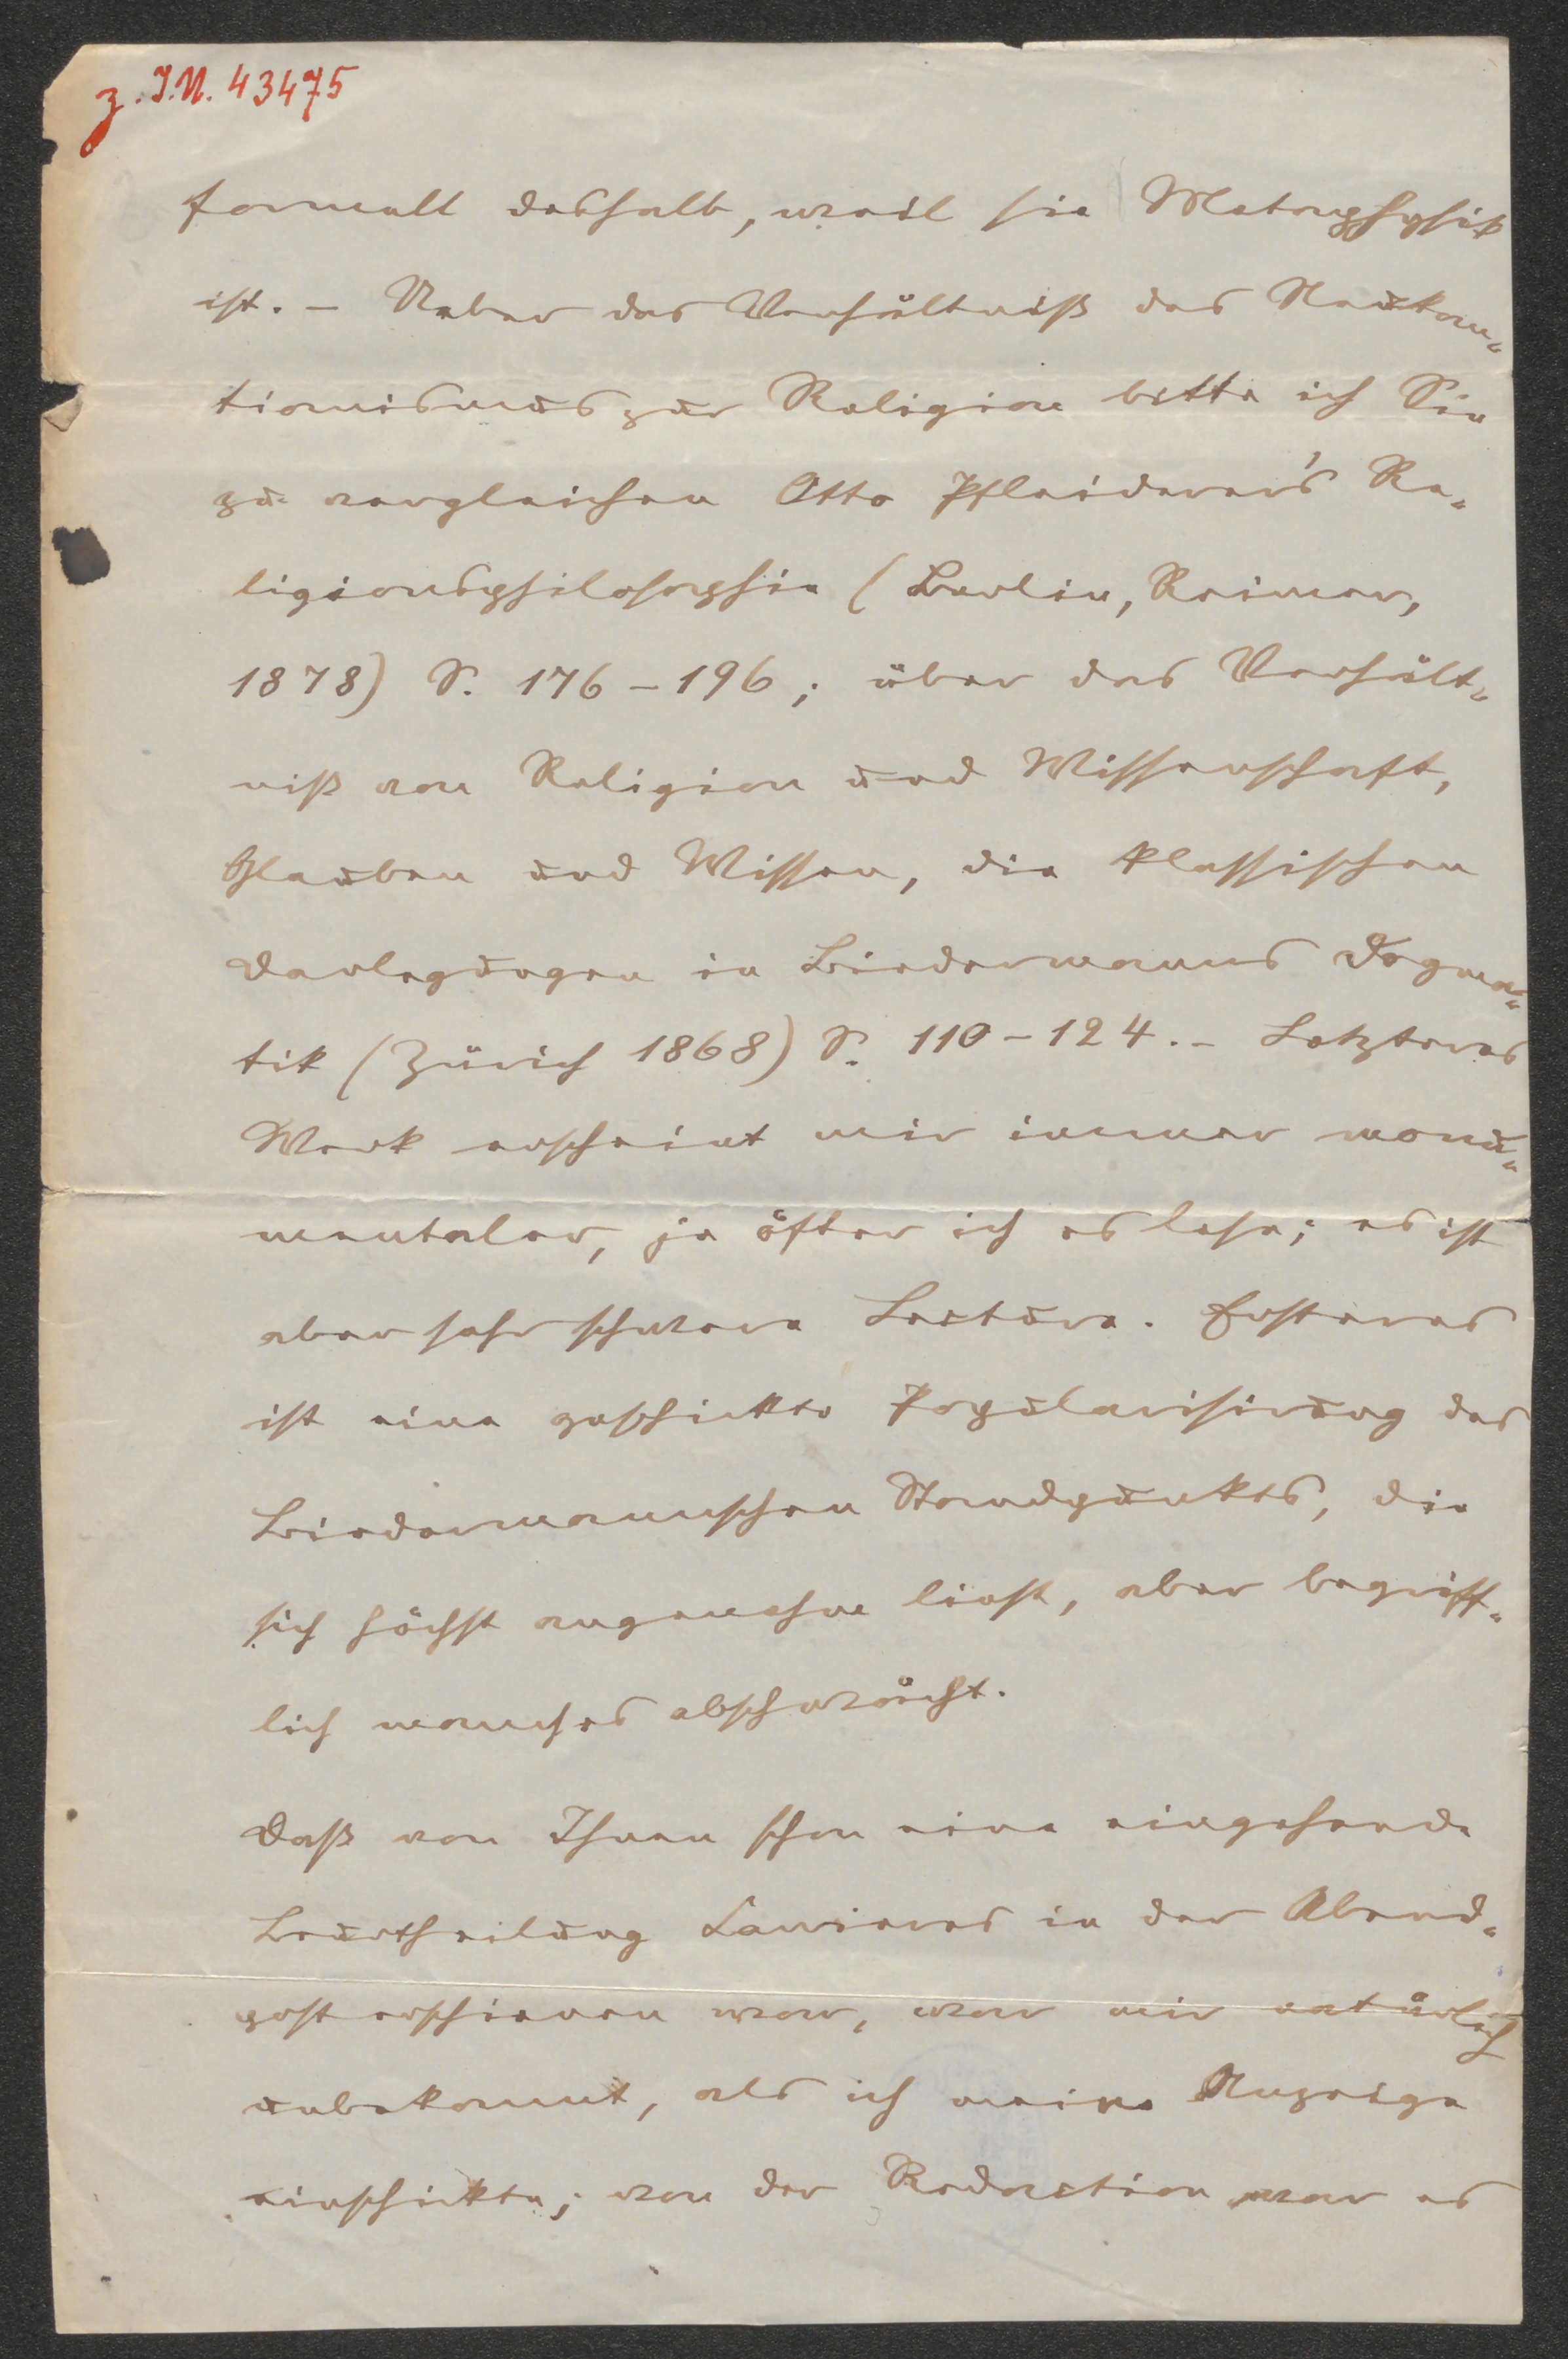 z. I.N. 43475
formell deshalb, weil sie Metaphysik
ist. – Ueber das Verhältniß des Neukan-
tianismus zur Religion bitte ich Sie
zu vergleichen Otto Pfleiderer's Re-
ligionsphilosophie (Berlin, Reimer,
1878) S. 176–196; über das Verhält-
niß von Religion und Wissenschaft,
Glauben und Wissen, die klassischen
Darlegungen in Biedermanns Dogma-
tik (Zürich 1868) S. 110–124. – Letzteres
Werk erscheint mir immer monu-
mentaler, je öfter ich es lese; es ist
aber sehr schwere Lectüre. Ersteres
ist eine geschickte Popularisirung des
Biedermannschen Standpunktes, die
sich höchst angenehm liest, aber begriff-
lich manches abschwächt.
Daß von Ihnen schon eine eingehende
Beurtheilung Lawieres in der Abend-
post erschienen war, war mir natürlich
unbekannt, als ich meine Anzeige
einschickte; von der Redaction war es